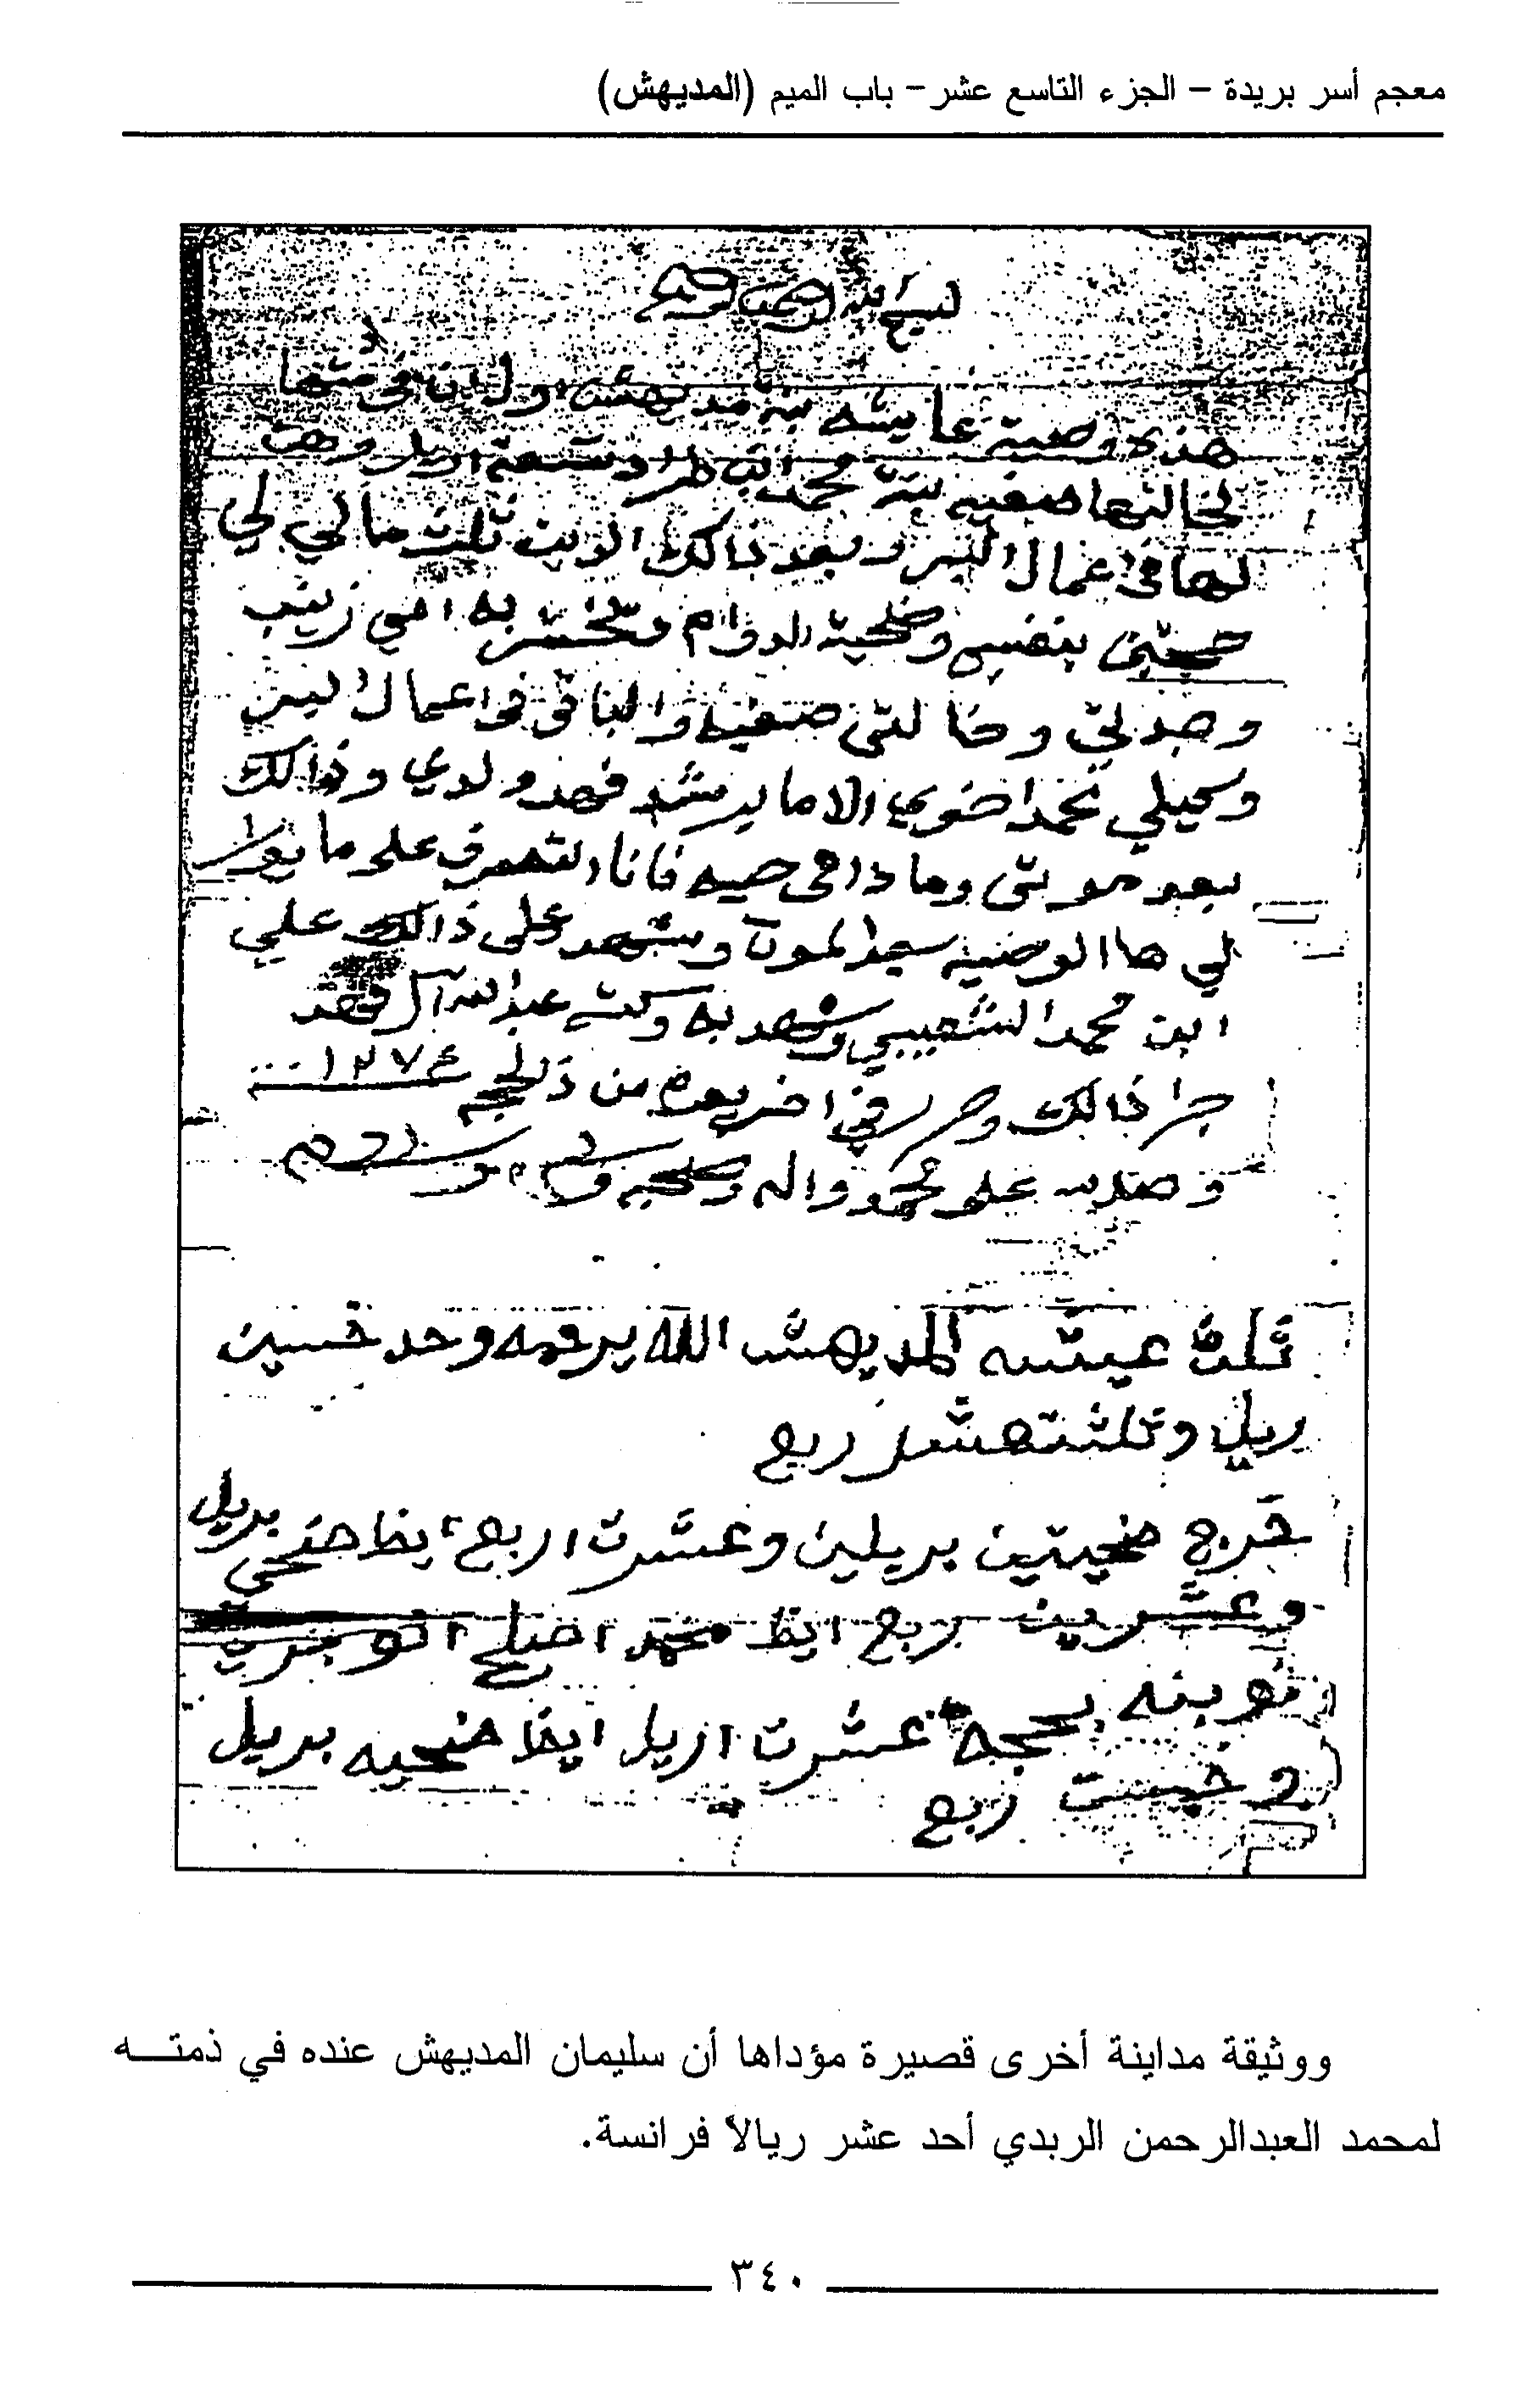 معجم أسر بريدة – الجزء التاسع عشر – باب الميم (المديهش)
هذه وصية عايشه بنت مديهش اول
لخالتها صفيه بنت محمد تسعة اريل وهن
لها في اعمال البر وبعد ذالك ثلث مالي لي
حجتين بنفسي وضحيه الدوام به امي زينب
وجدتي وخالتي صفيه والباقي في اعمال البر
وكيلي محمد اخوي الا ما يرشد فهد ولدي وذالك
بعد موتي وما دام حيه فانا اتصرف على ما
لي ها الوصيه وشهد على ذالك علي
ابن محمد الشعيبي وشهد به وكتبه عبدالله آل فهد
جرا ذالك وحرر في اخر يوم من ذالحجه ١٢٧٤
وصلى الله على محمد واله وصحبه وسلم
ثلث عيشه المديهش الله يرحمه وحد خمسين
ريل وثلثتعشر ربع
خرج ضحيتين بريلين وعشرت اربع ايظا ضحي بريل
وعشرين ربع ايظا محمد
بحجه عشرت اريل ايظا ضحيه بريل
وخمست ربع
ووثيقة مداينة أخرى قصيرة مؤداها أن سليمان المديهش عنده في ذمتـــه
لمحمد العبدالرحمن الربدي أحد عشر ريالاً فرانسة.
٣٤٠